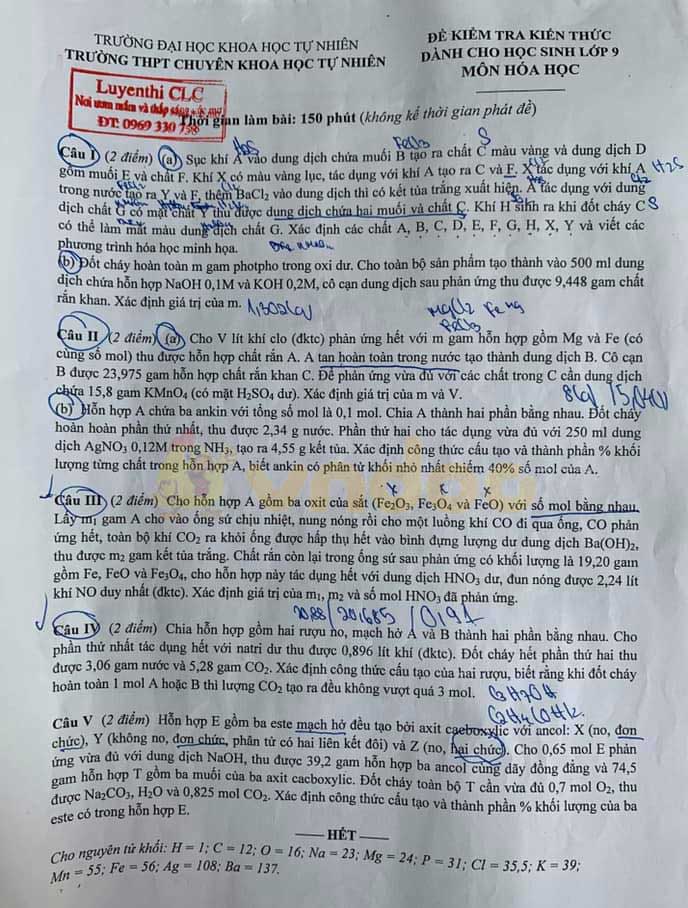 TRƯỜNG ĐẠI HỌC KHOA HỌC TỰ NHIÊN
TRƯỜNG THPT CHUYÊN KHOA HỌC TỰ NHIÊN
ĐỀ KIỂM TRA KIẾN THỨC
DÀNH CHO HỌC SINH LỚP 9
MÔN HÓA HỌC
Luyenthi CLC
Nơi ươm mầm và thắp sáng
ĐT: 0969 330 738
Thời gian làm bài: 150 phút (không kể thời gian phát đề)
Câu I (2 điểm) (a) Sục khí A vào dung dịch chứa muối B tạo ra chất C màu vàng và dung dịch D
gồm muối E và chất F. Khí X có màu vàng lục, tác dụng với khí A tạo ra C và F. X tác dụng với khí A
trong nước tạo ra Y và F, thêm BaCl2 vào dung dịch thì có kết tủa trắng xuất hiện. A tác dụng với dung
dịch chất G có mặt chất Y thu được dung dịch chứa hai muối và chất C. Khí H sinh ra khi đốt cháy C
có thể làm mất màu dung dịch chất G. Xác định các chất A, B, C, D, E, F, G, H, X, Y và viết các
phương trình hóa học minh họa.
(b) Đốt cháy hoàn toàn m gam photpho trong oxi dư. Cho toàn bộ sản phẩm tạo thành vào 500 ml dung
dịch chứa hỗn hợp NaOH 0,1M và KOH 0,2M, cô cạn dung dịch sau phản ứng thu được 9,448 gam chất
rắn khan. Xác định giá trị của m.
MgCl2 Fe Mg
FeCl3
Câu II (2 điểm) (a) Cho V lít khí clo (đktc) phản ứng hết với m gam hỗn hợp gồm Mg và Fe (có
cùng số mol) thu được hỗn hợp chất rắn A. A tan hoàn toàn trong nước tạo thành dung dịch B. Cô cạn
B được 23,975 gam hỗn hợp chất rắn khan C. Để phản ứng vừa đủ với các chất trong C cần dung dịch
chứa 15,8 gam KMnO4 (có mặt H2SO4 dư). Xác định giá trị của m và V.
(b) Hỗn hợp A chứa ba ankin với tổng số mol là 0,1 mol. Chia A thành hai phần bằng nhau. Đốt cháy
hoàn hoàn phần thứ nhất, thu được 2,34 g nước. Phần thứ hai cho tác dụng vừa đủ với 250 ml dung
dịch AgNO3 0,12M trong NH3, tạo ra 4,55 g kết tủa. Xác định công thức cấu tạo và thành phần % khối
lượng từng chất trong hỗn hợp A, biết ankin có phân tử khối nhỏ nhất chiếm 40% số mol của A.
Câu III (2 điểm) Cho hỗn hợp A gồm ba oxit của sắt (Fe2O3, Fe3O4 và FeO) với số mol bằng nhau.
Lấy m1 gam A cho vào ống sứ chịu nhiệt, nung nóng rồi cho một luồng khí CO đi qua ống, CO phản
ứng hết, toàn bộ khí CO2 ra khỏi ống được hấp thụ hết vào bình đựng lượng dư dung dịch Ba(OH)2,
thu được m2 gam kết tủa trắng. Chất rắn còn lại trong ống sứ sau phản ứng có khối lượng là 19,20 gam
gồm Fe, FeO và Fe3O4, cho hỗn hợp này tác dụng hết với dung dịch HNO3 dư, đun nóng được 2,24 lít
khí NO duy nhất (đktc). Xác định giá trị của m1, m2 và số mol HNO3 đã phản ứng.
Câu IV (2 điểm) Chia hỗn hợp gồm hai rượu no, mạch hở A và B thành hai phần bằng nhau. Cho
phần thứ nhất tác dụng hết với natri dư thu được 0,896 lít khí (đktc). Đốt cháy hết phần thứ hai thu
được 3,06 gam nước và 5,28 gam CO2. Xác định công thức cấu tạo của hai rượu, biết rằng khi đốt cháy
hoàn toàn 1 mol A hoặc B thì lượng CO2 tạo ra đều không vượt quá 3 mol.
C3H7OH
Câu V (2 điểm) Hỗn hợp E gồm ba este mạch hở đều tạo bởi axit cacboxylic với ancol: X (no, đơn
chức), Y (không no, đơn chức, phân tử có hai liên kết đôi) và Z (no, hai chức). Cho 0,65 mol E phản
ứng vừa đủ với dung dịch NaOH, thu được 39,2 gam hỗn hợp ba ancol cùng dãy đồng đẳng và 74,5
gam hỗn hợp T gồm ba muối của ba axit cacboxylic. Đốt cháy toàn bộ T cần vừa đủ 0,7 mol O2, thu
được Na2CO3, H2O và 0,825 mol CO2. Xác định công thức cấu tạo và thành phần % khối lượng của ba
este có trong hỗn hợp E.
HẾT
Cho nguyên tử khối: H = 1; C = 12; O = 16; Na = 23; Mg = 24; P = 31; Cl = 35,5; K = 39;
Mn = 55; Fe = 56; Ag = 108; Ba = 137.